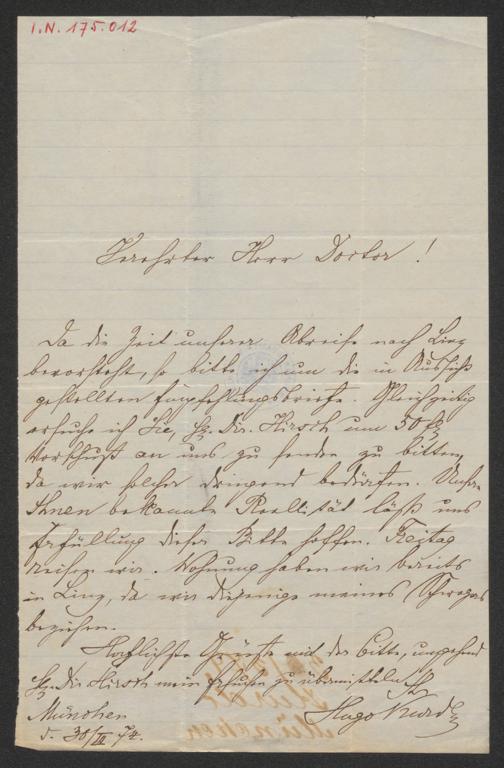 I.N. 175.012
Verehrter Herr Doctor!
Da die Zeit unserer Abreise nach Linz
bevorsteht, so bitte ich um die in Aussicht
gestellten Empfehlungsbriefe. Gleichzeitig
ersuche ich Sie, H. Dir. Hirsch um 50 fl
Vorschuß an uns zu senden zu bitten,
da wir solcher dringend bedürfen. Unsere
Ihnen bekannte Reellität läßt uns
Erfüllung dieser Bitte hoffen. Freitag
reisen wir. Wohnung haben wir bereits
in Linz, da wir diejenige meines Schwagers
beziehen.
Höflichste Grüße mit der Bitte, umgehend
H. Dir. Hirsch mein Ersuchen zu übermitteln
Hugo
München
d. 30/ 74.
München